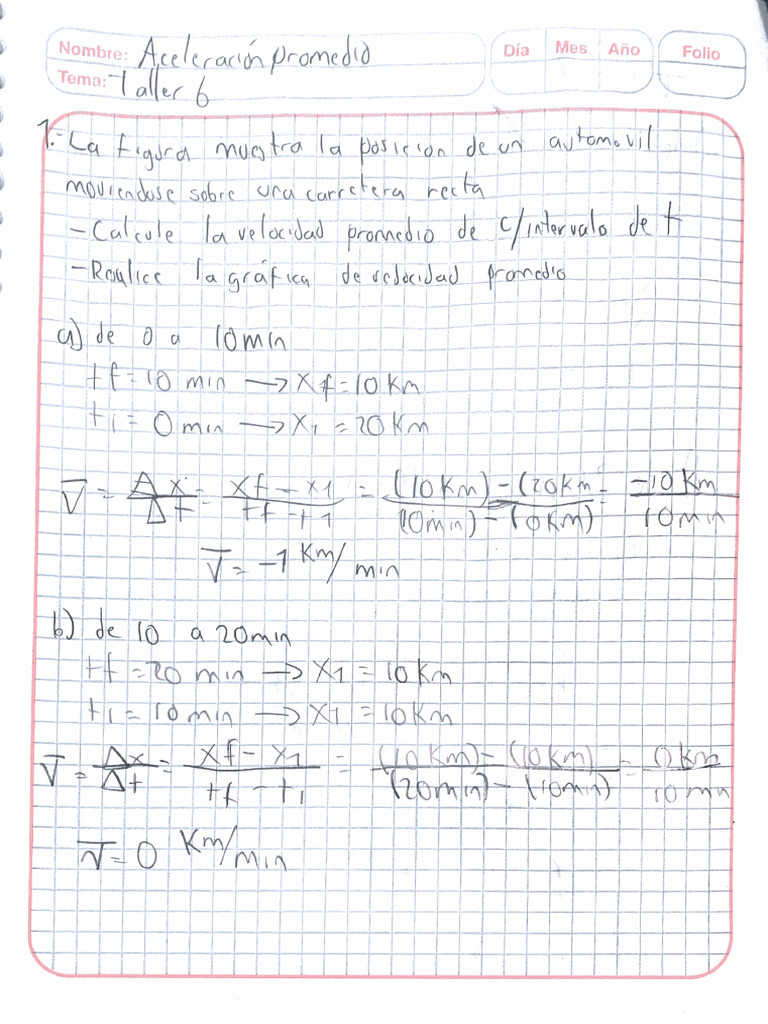 Nombre: Aceleración promedio Día Mes Año Folio
Tema: Taller 6
1.- La figura muestra la posición de un automovil
moviendose sobre una carretera recta
- Calcule la velocidad promedio de c/intervalo de t
- Realice la gráfica de velocidad promedio
a) de 0 a 10min
tf = 10 min → xf = 10 Km
t1 = 0 min → x1 = 20 Km
V̅ = Δx/Δt = xf - x1/tf - t1 = (10 Km) - (20 Km/(10min) - (0 Km) = -10 Km/10 min
V̅ = -1 Km/min
b) de 10 a 20min
tf = 20 min → x1 = 10 Km
t1 = 10 min → x1 = 10 Km
V̅ = Δx/Δt = xf - x1/tf - t1 = (10 Km) - (10 Km)/(20min) - (10min) = 0 Km/10 min
V̅ = 0 Km/min